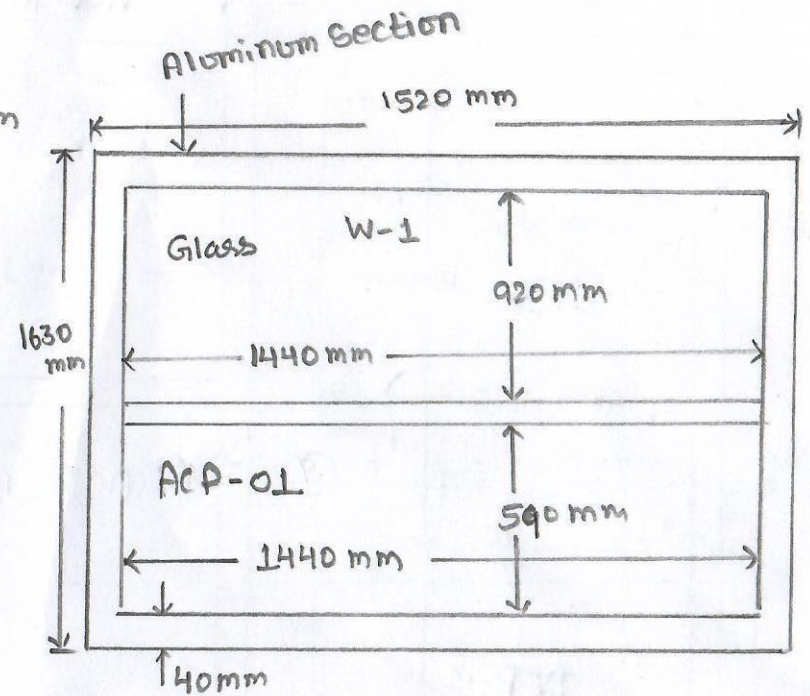 Aluminum Section
m
1520 mm
Glass W-1
920 mm
1630
mm
1440 mm
ACP-01
590 mm
1440 mm
40mm